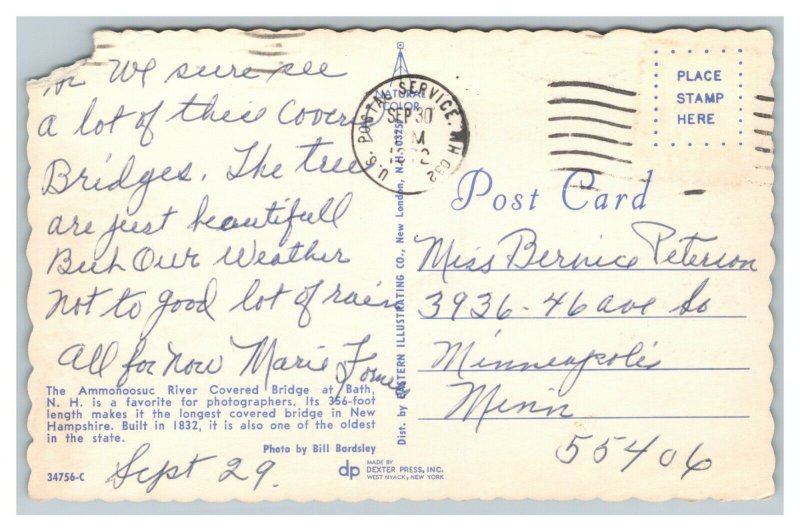 We sure see
a lot of these Cover
Bridges. The tree
are just beautifull
But Our Weather
Not to good lot of rain
All for now Marie
The Ammonoosuc River Covered Bridge at Bath,
N. H. is a favorite for photographers. Its 356-foot
length makes it the longest covered bridge in New
Hampshire. Built in 1832, it is also one of the oldest
in the state.
Photo by Bill Bardsley
34756-C
Sept 29.
NATURAL
COLOR
Dist. by EASTERN ILLUSTRATING CO., New London, N.H. 03257
dp
MADE BY
DEXTER PRESS, INC.
WEST NYACK, NEW YORK
U.S. POSTAL SERVICE, NH 032
SEP 30
PLACE
STAMP
HERE
Post Card
Miss Bernice Peterson
3936-46 ave So
Minneapolis
Minn
55406